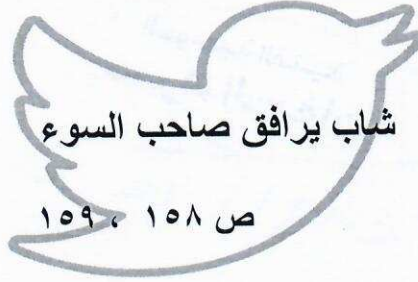 شاب يرافق صاحب السوء
ص ١٥٨ ، ١٥٩